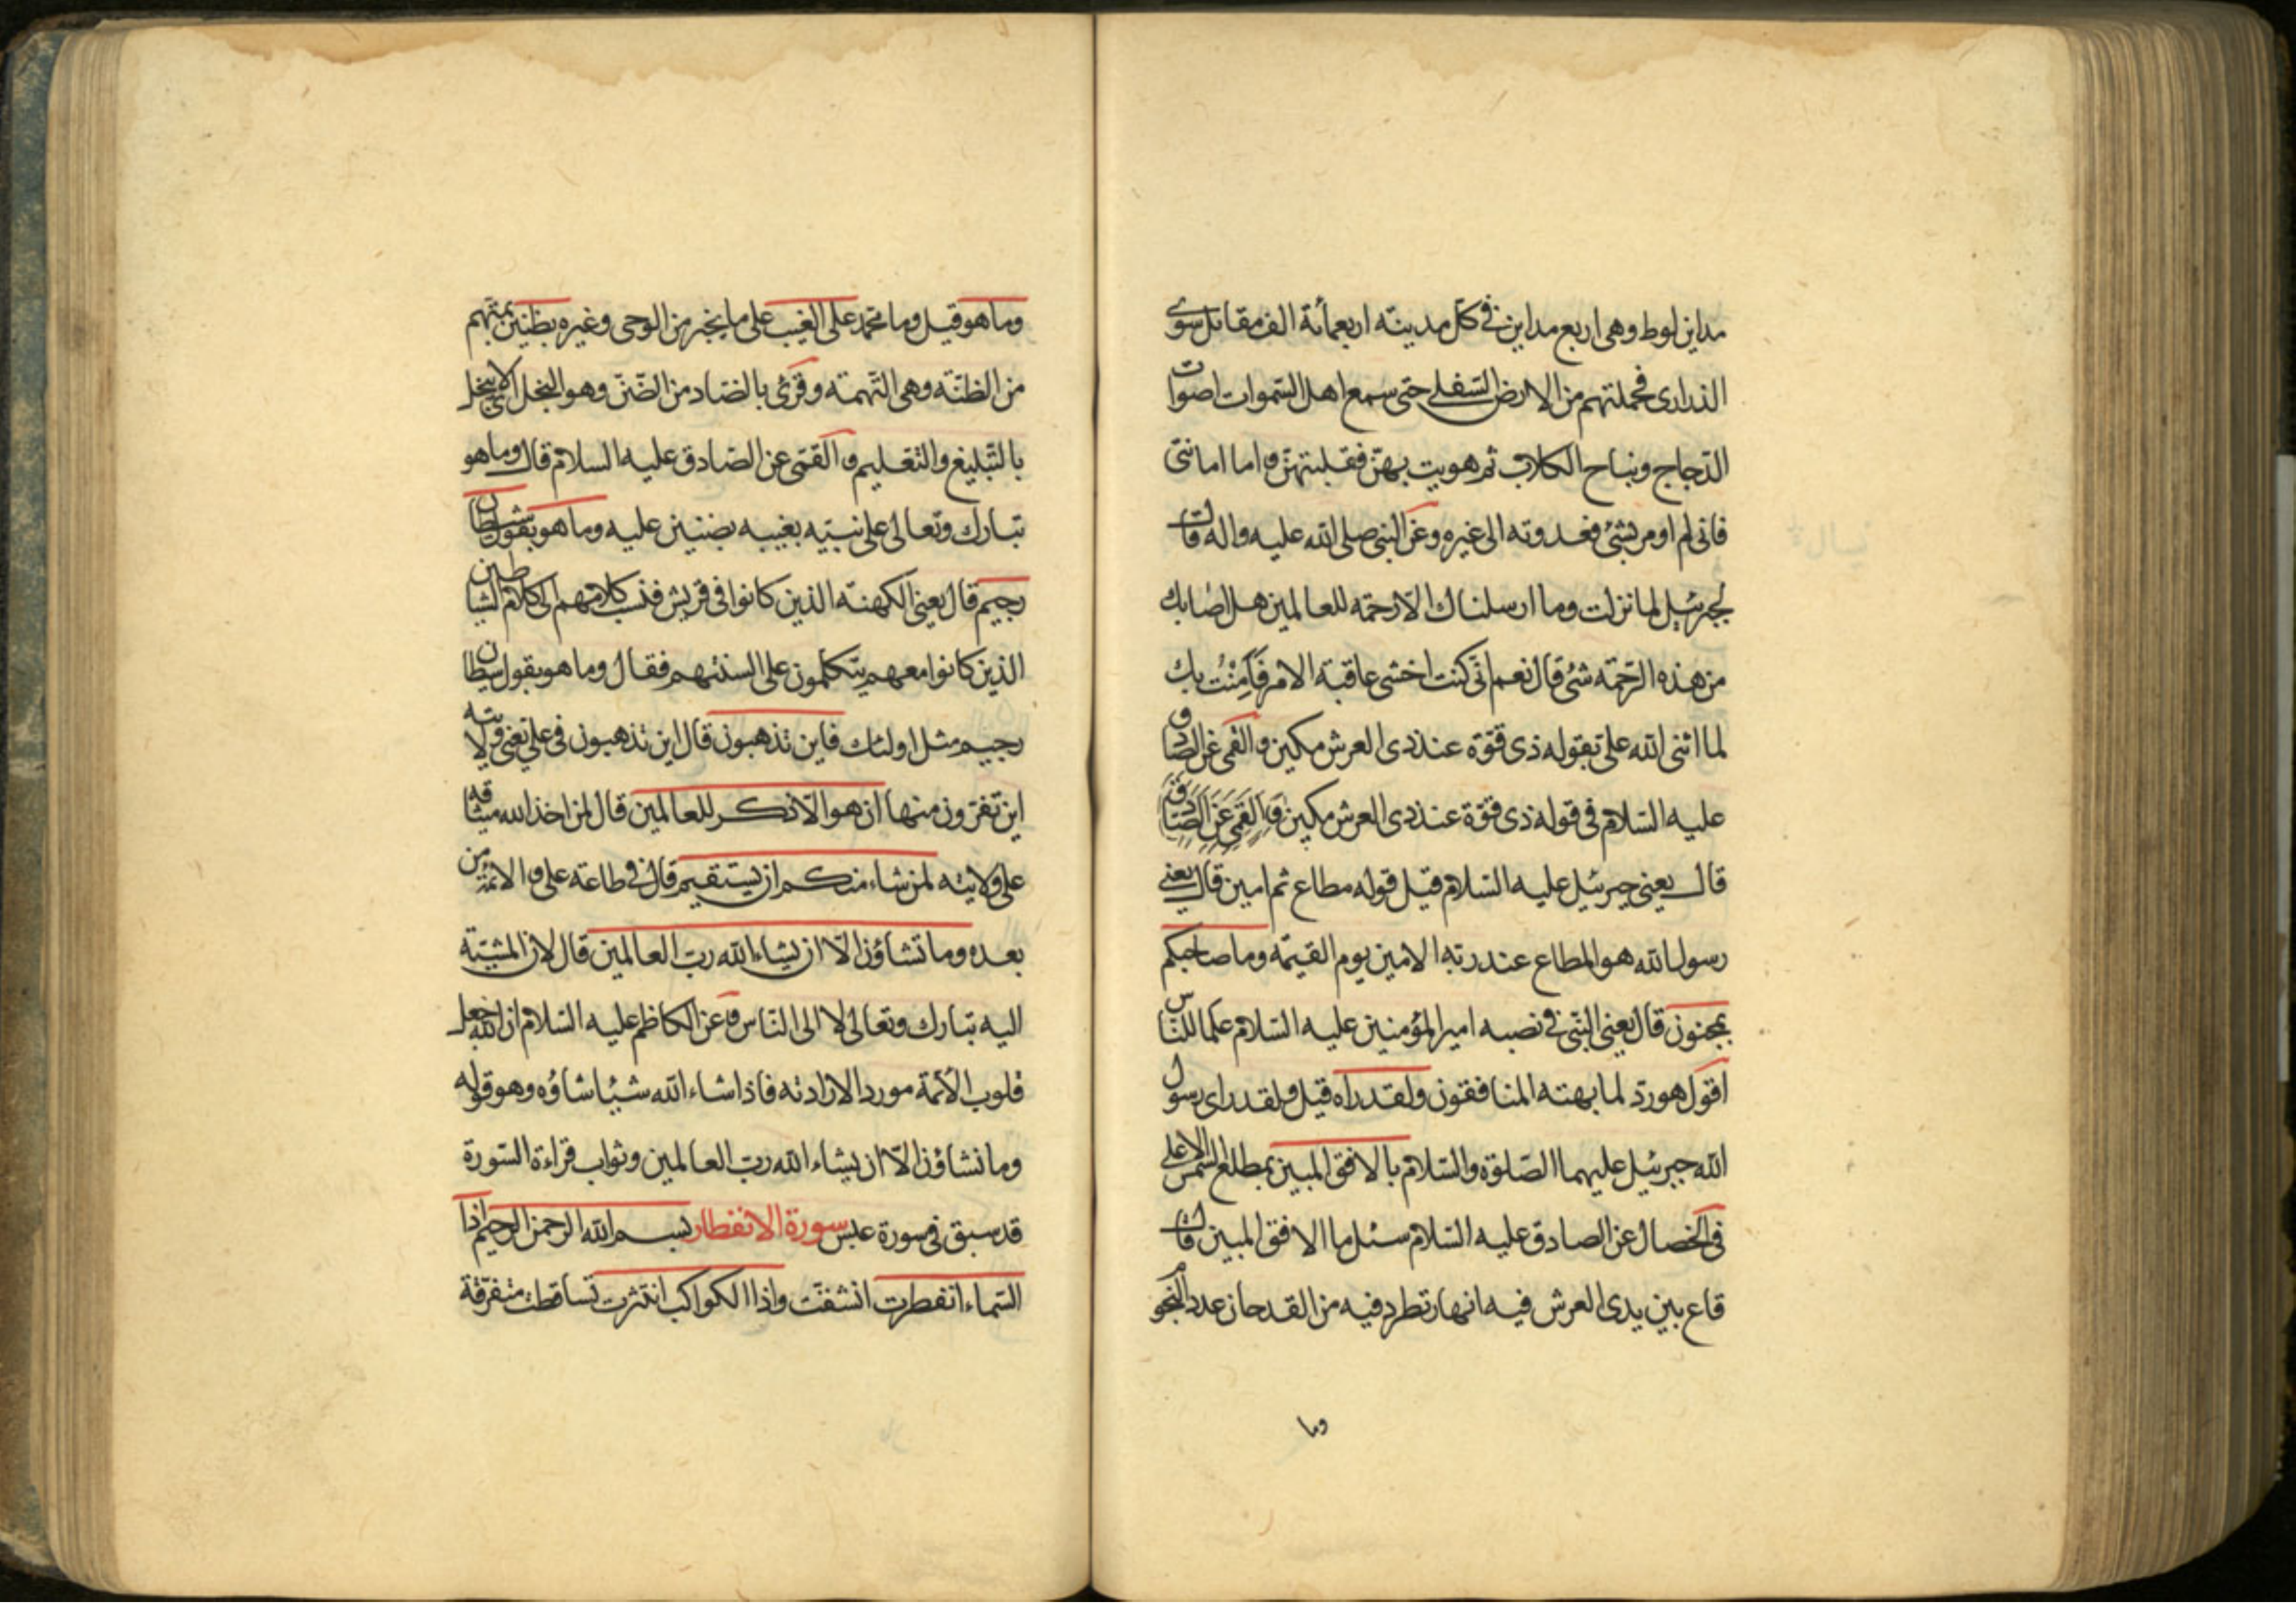 مداين لوط وهى اربع مداين فى كل مدينة اربعمأئة الف مقاتل سوى
الذرارى فحملتهم من الارض السفلى حتى سمع اهل السموات اصوات
الدجاج ونباح الكلاب ثم هويت بهن فقلبتهن و اما امانتى
فانى لم اومر بشئ فعدوته الى غيره وعن النبى صلى الله عليه واله قال
لجبرئيل لما نزلت وما ارسلناك الا رحمة للعالمين هل اصابك
من هذه الرحمة شئ قال نعم انى كنت اخشى عاقبة الامر فَآمِنْتُ بك
لما اثنى الله على بقوله ذى قوة عند ذى العرش مكين و القمى عن الصادق
عليه السلام فى قوله ذى قوة عند ذى العرش مكين و القمى عن الصادق
قال يعنى جبرئيل عليه السلام قيل قوله مطاع ثم امين قال يعنى
رسول الله هو المطاع عند ربه الامين يوم القيمة وما صاحبكم
بمجنون قال يعنى النبى فى نصبه امير المؤمنين عليه السلام علما للناس
اقول هو رد لما بهته المنافقون ولقد راه قيل ولقد راى رسول
الله جبرئيل عليهما الصلوة والسلام بالافق المبين بمطلع الشمس الاعلى
فى الخصال عن الصادق عليه السلام سئل ما الافق المبين قال
قاع بين يدى العرش فيه انهار تطرد فيه من القدحان عدد النجوم
وما
وما هو قيل وما محمد على الغيب على ما يخبر من الوحى وغيره بظنين بمتهم
من الظنة وهى التهمة و قرئ بالضاد من الضن وهو البخل اى لا يبخل
بالتبليغ والتعليم و القمى عن الصادق عليه السلام قال وما هو
تبارك وتعالى على نبيه بغيبه بضنين عليه وما هو بقول شيطان
رجيم قال يعنى الكهنة الذين كانوا فى قريش فنسب كلامهم الى كلام الشياطين
الذين كانوا معهم يتكلمون على السنتهم فقال وما هو بقول شيطان
رجيم مثل اولئك فاين تذهبون قال اين تذهبون فى على يعنى ولايته
اين تفرون منها ان هو الا ذكر للعالمين قال لمن اخذ الله ميثاقه
على ولايته لمن شاء منكم ان يستقيم قال فى طاعة على و الائمة من
بعده وما تشاؤن الا ان يشاء الله رب العالمين قال لان المشية
اليه تبارك وتعالى لا الى الناس و عن الكاظم عليه السلام ان الله جعل
قلوب الأئمة موردا لارادته فاذا شاء الله شيئا شاؤه وهو قوله
وما تشاؤن الا ان يشاء الله رب العالمين وثواب قراءة السورة
قد سبق فى سورة عبس سورة الانفطار بسم الله الرحمن الرحيم اذا
السماء انفطرت انشقت واذا الكواكب انتثرت تساقطت متفرقة